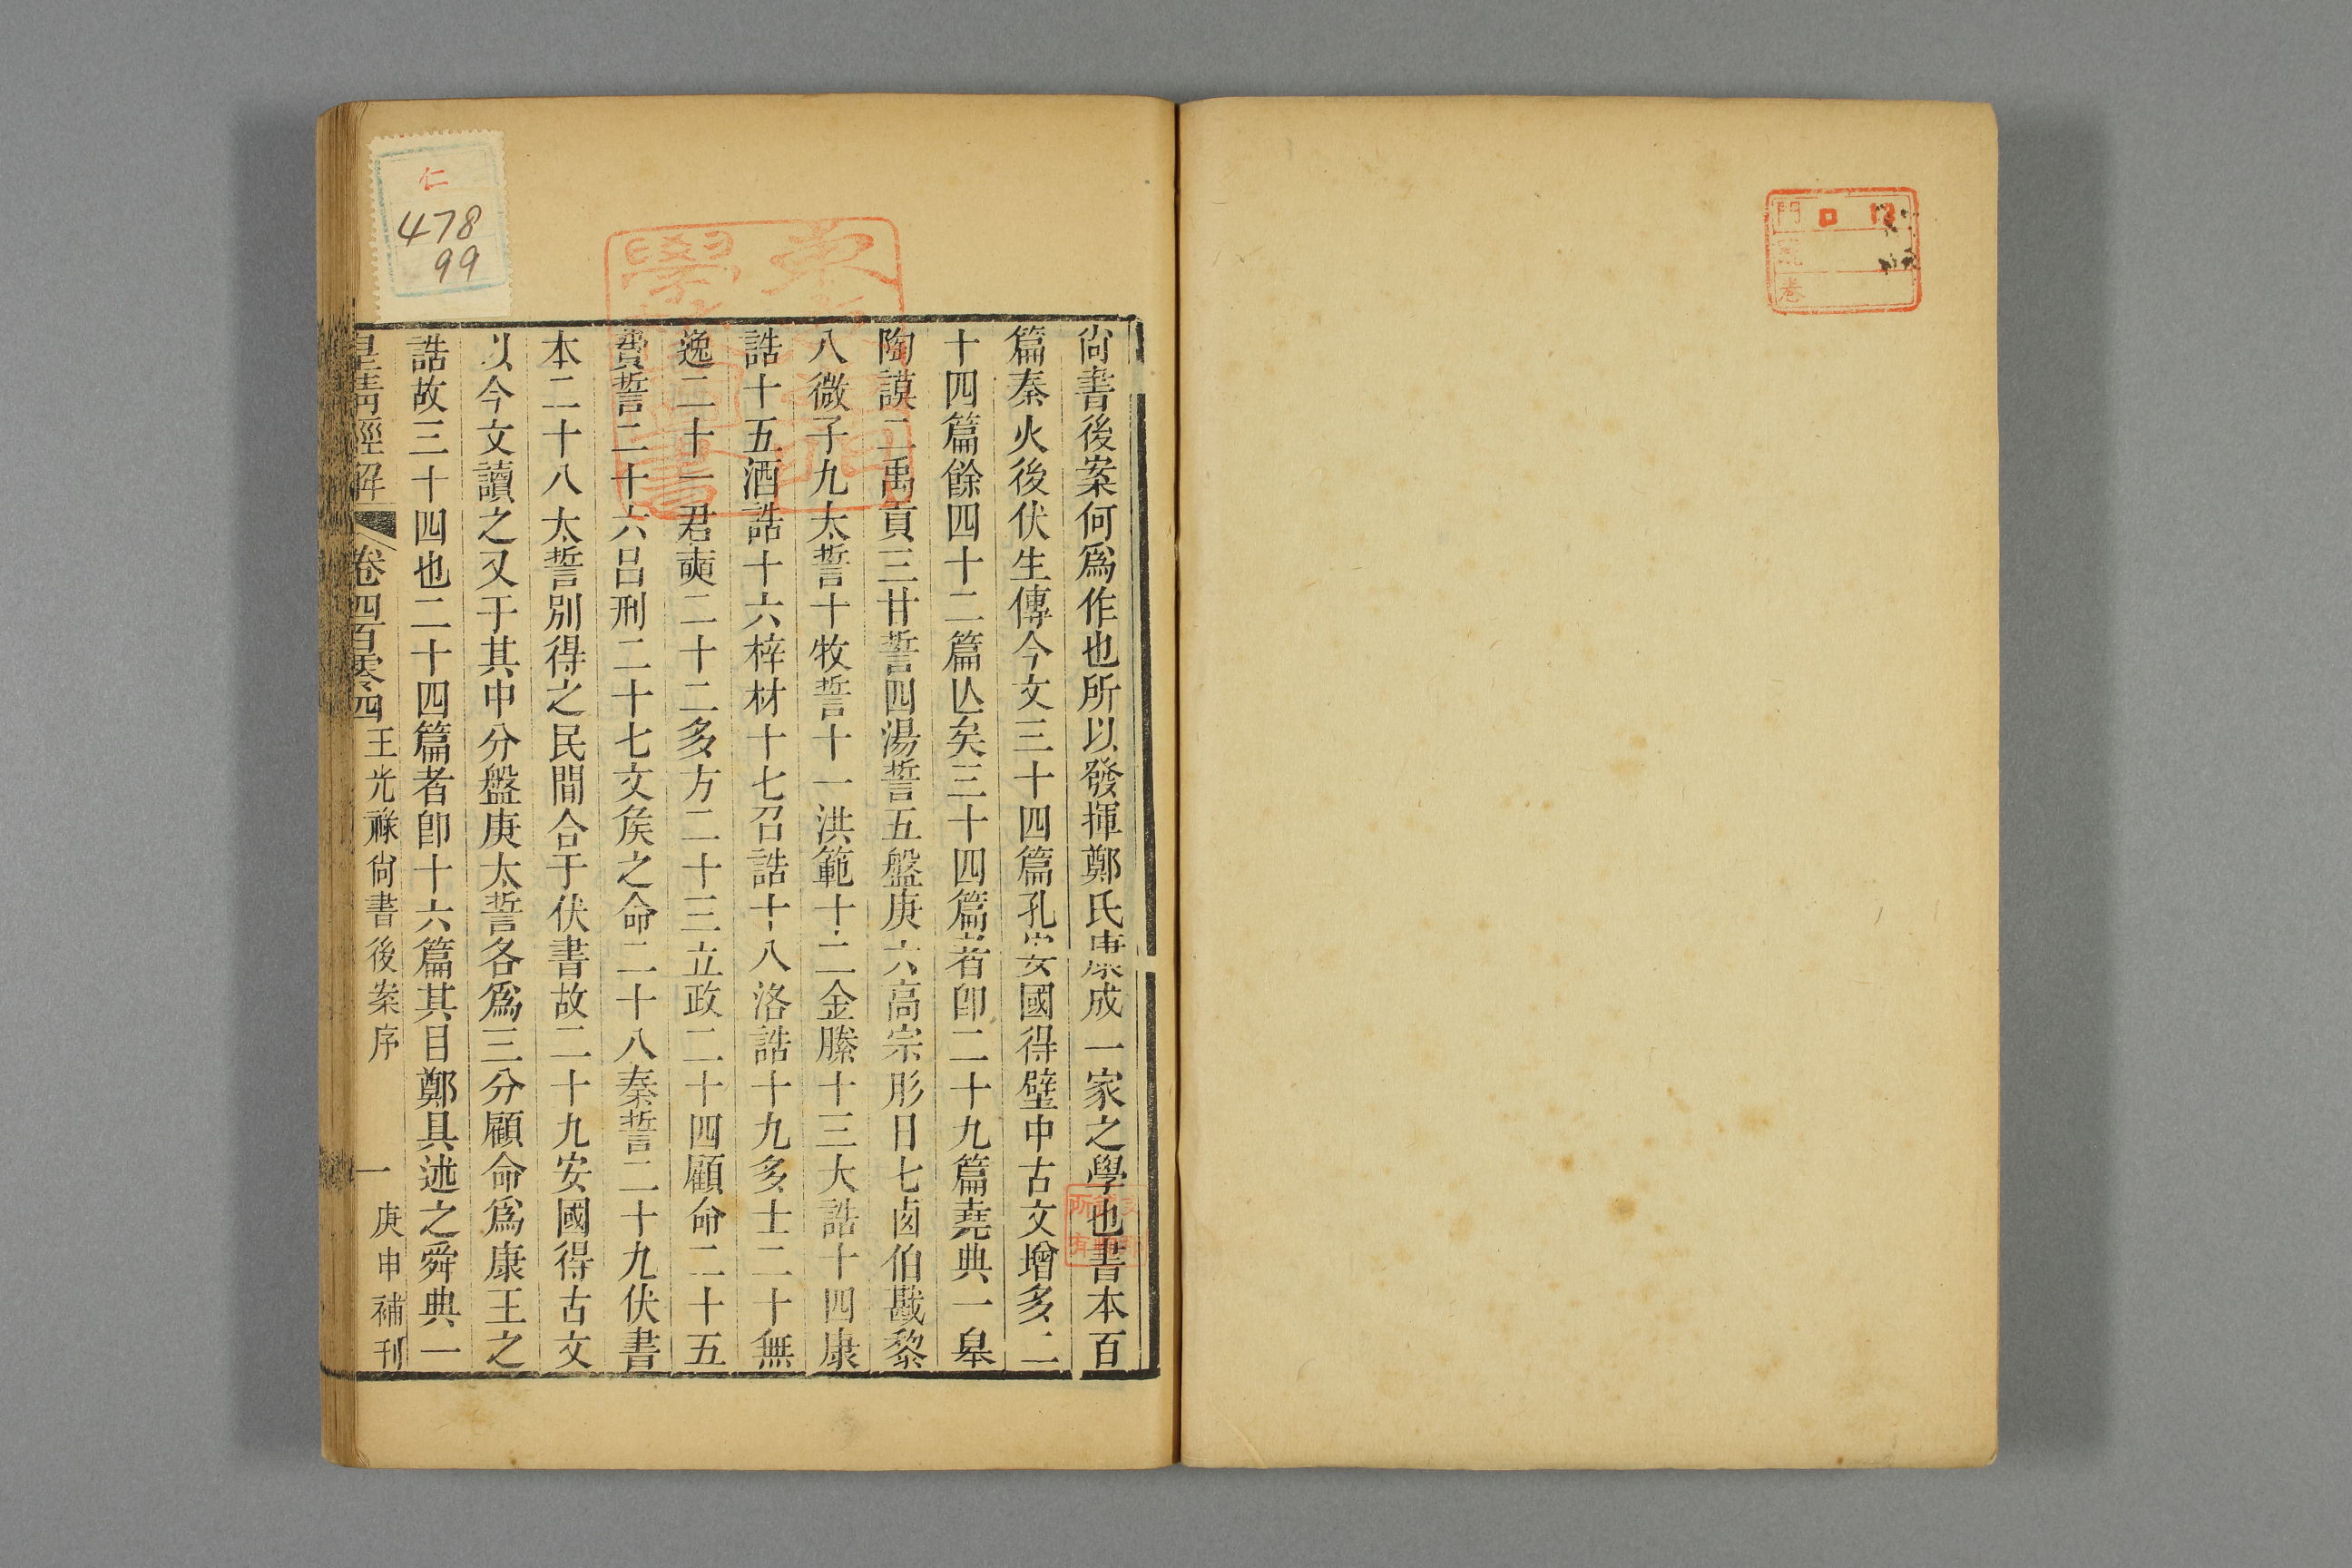 尙書後案何爲作也所以發揮鄭氏康成一家之學也書本百
篇秦火後伏生傳今文三十四篇孔安國得壁中古文增多二
十四篇餘四十二篇亾矣三十四篇者卽二十九篇堯典一皋
陶謨二禹貢三甘誓四湯誓五盤庚六高宗肜日七西伯戡黎
八微子九太誓十牧誓十一洪範十二金縢十三大誥十四康
誥十五酒誥十六梓材十七召誥十八洛誥十九多士二十無
逸二十一君奭二十二多方二十三立政二十四顧命二十五
費誓二十六呂刑二十七文矦之命二十八秦誓二十九伏書
本二十八太誓別得之民間合于伏書故二十九安國得古文
以今文讀之又于其中分盤庚太誓各爲三分顧命爲康王之
誥故三十四也二十四篇者卽十六篇其目鄭具述之舜典一
皇淸經解 卷四百零四 王光祿尙書後案序 一 庚申補刊
仁
478
99
門 口 13
卷